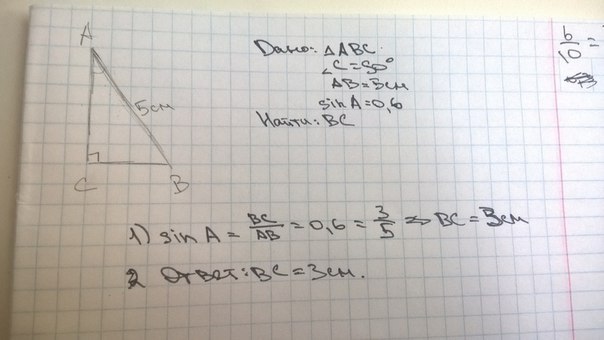 A
5см
C
B
Дано: △ABC
∠C=90°
AB=5см
sin A=0,6
Найти: BC
6/10 =
1) sin A = BC/AB = 0,6 = 3/5 ⇒ BC = 3см
Ответ: BC = 3см.